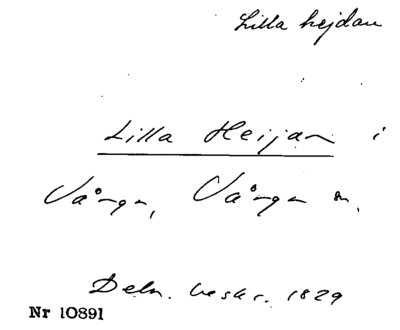 Lilla hejdan
Lilla Heijan i
Vånga, Vånga sn.
Deln. beskr. 1829
Nr 10891